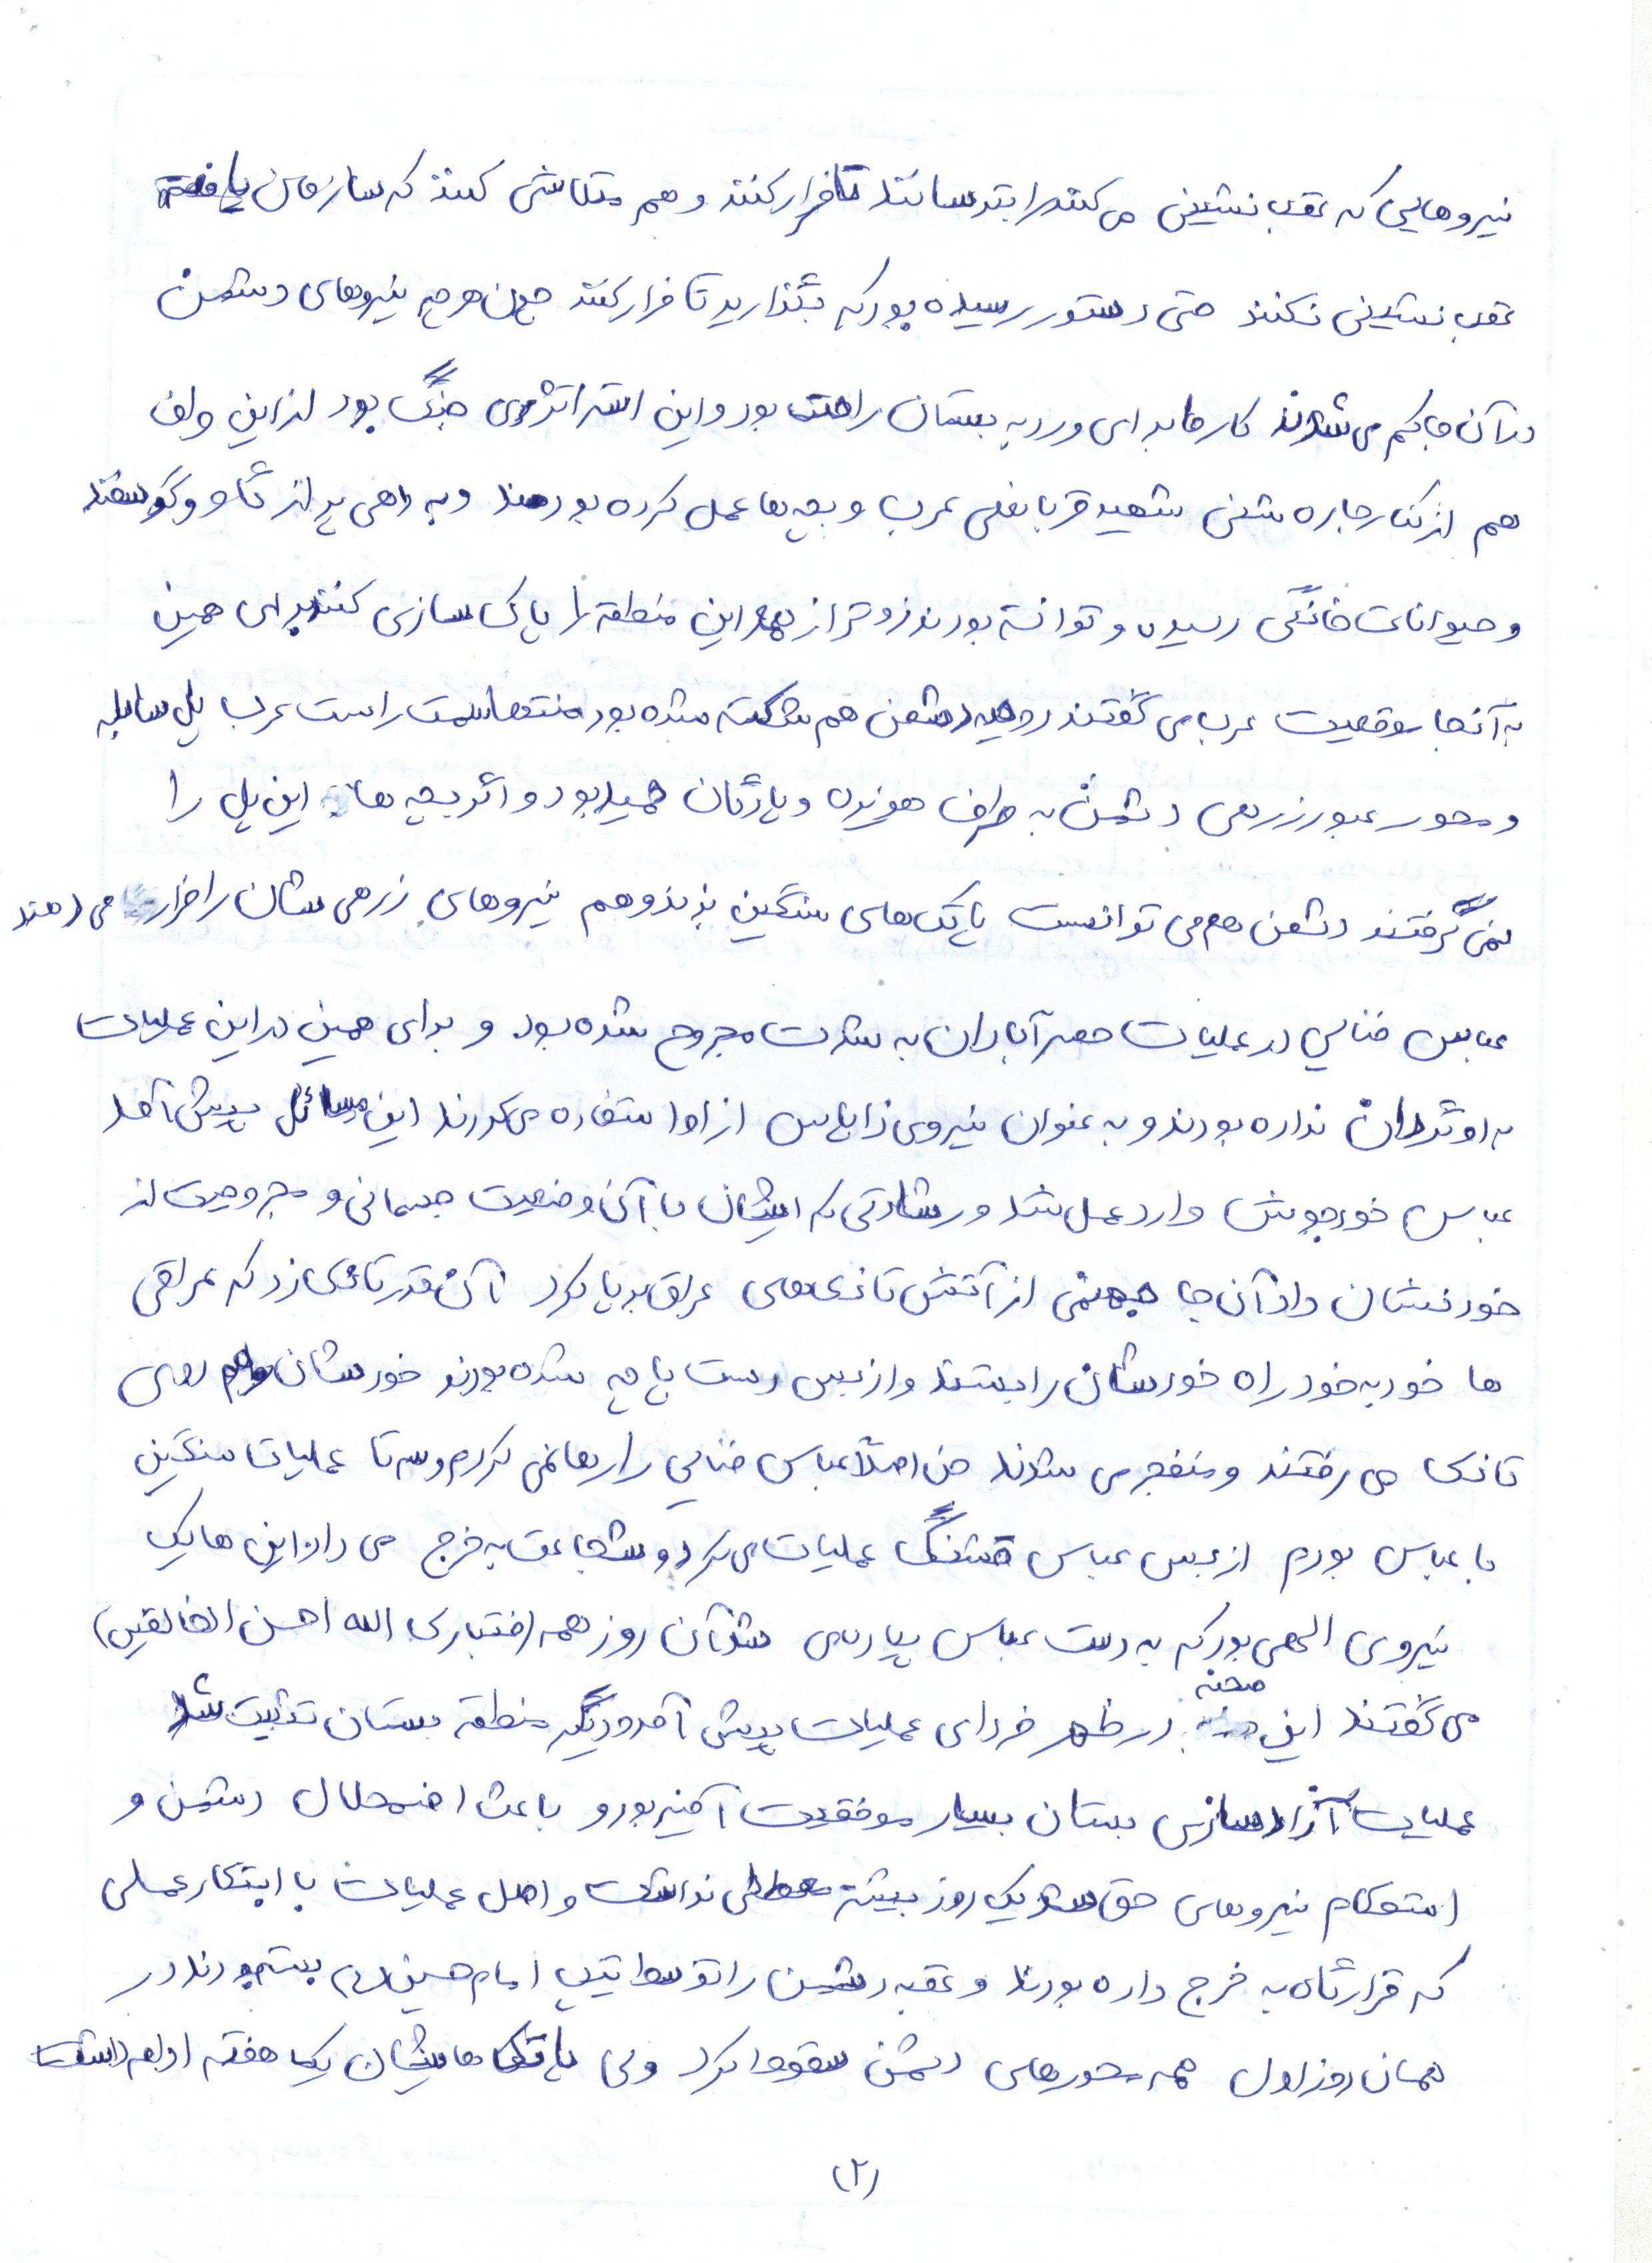 نیروهایی که عقب نشینی می کنند را بترسانند تا فرار کنند و هم متلاشی کنند که سازمان یافته
عقب نشینی نکنند حتی دستور رسیده بود که بگذارید تا فرار کنند چون هر چه نیروهای دشمن
در آن جا کم می شدند کار ما برای ورد به بستان راحت بود و این استراتژی جنگ بود از این ولف
هم از کنار جاده شنی شهید قربانعلی عرب و بچه ها عمل کرده بودند و به راهی پر از گاو و گوسفند
و حیوانات خانگی رسیده و توانسته بودند زودتر از همه این منطقه را پاک سازی کنند برای همین
به آنها موقعیت عرب می گفتند روحیه دشمن هم شکسته شده بود منتها سمت راست عرب پل سابله
و محور عبور زرهی دشمن به طرف هویزه و پادگان حمید بود و اگر بچه ها این پل را
نمی گرفتند دشمن هم می توانست پاتک های سنگین بزند و هم نیروهای زرهی شان را فرار می دهند
عباس خنامی در عملیات حصر آبادان به شدت مجروح شده بود و برای همین در این عملیات
به او گردان نداده بودند و به عنوان نیروی زاپاس از او استفاده می کردند این مسائل پیش آمد
عباس خودجوش وارد عمل شد و رشادتی که ایشان با آن وضعیت جسمانی و مجروحیت از
خود نشان داد آن جا جهنمی از آتش تانک های عراق بر پا کرد آن قدر تانک زد که عراقی
ها خود به خود راه خودشان را بستند و از بس دست پاچه شده بودند خودشان هم روی
تانک می رفتند و منفجر می شدند من اصلا عباس خنامی را رها نمی کردم و سه تا عملیات سنگین
با عباس بودم از بس عباس قشنگ عملیات می کرد و شجاعت به خرج می داد این ها یک
نیروی الهی بود که به دست عباس پیاده می شد آن روز همه (فتبارک الله احسن الخالقین)
می گفتند این صحنه در ظهر فردای عملیات پیش آمد و دیگه منطقه بستان تثبیت شد
عملیات آزادسازی بستان بسیار موفقیت آمیز بود و باعث اضمحلال دشمن و
استحکام نیروهای حق شد یک روز بیشتر معطلی نداشت و اصل عملیات با ابتکار عملی
که قرارگاه به خرج داده بودند و عقبه دشمن را توسط تیپ امام حسین (ع) بسته بودند در
همان روز اول همه محورهای دشمن سقوط کرد ولی پاتک هایشان یک هفته ادامه داشت
(۲)